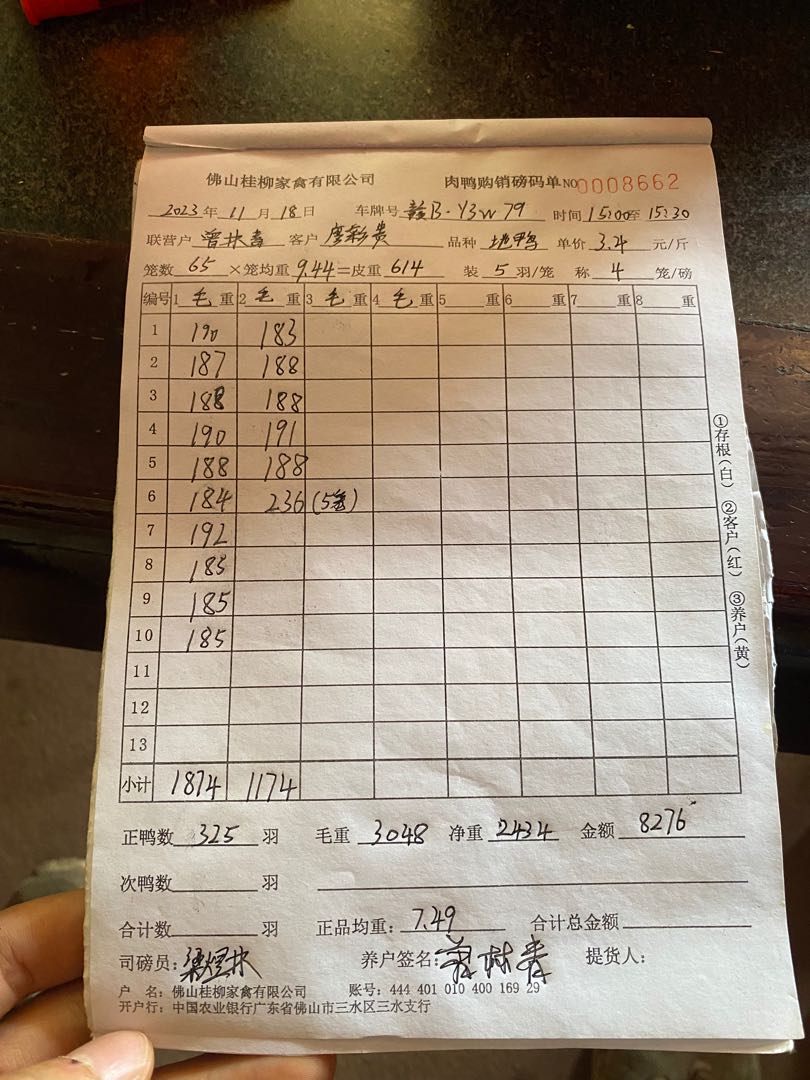 佛山桂柳家禽有限公司 肉鸭购销磅码单 NO 0008662
2023 年 11 月 18 日 车牌号 赣B·Y3W79 时间 15:00 至 15:30
联营户 曾林青 客户 廖彩贵 品种 地鸭 单价 3.4 元/斤
笼数 65 ×笼均重 9.44 =皮重 614 装 5 羽/笼 称 4 笼/磅
编号 1 毛 重 2 毛 重 3 毛 重 4 毛 重 5 重 6 重 7 重 8 重
1 190 183
2 187 188
3 188 188
4 190 191
5 188 188
6 184 236 (5笼)
7 192
8 185
9 185
10 185
11
12
13
小计 1874 1174
正鸭数 325 羽 毛重 3048 净重 2434 金额 8276
次鸭数 羽
合计数 羽 正品均重: 7.49 合计总金额
司磅员: 养户签名: 提货人:
户 名: 佛山桂柳家禽有限公司 账号: 444 401 010 400 169 29
开户行: 中国农业银行广东省佛山市三水区三水支行
①存根(白) ②客户(红) ③养户(黄)